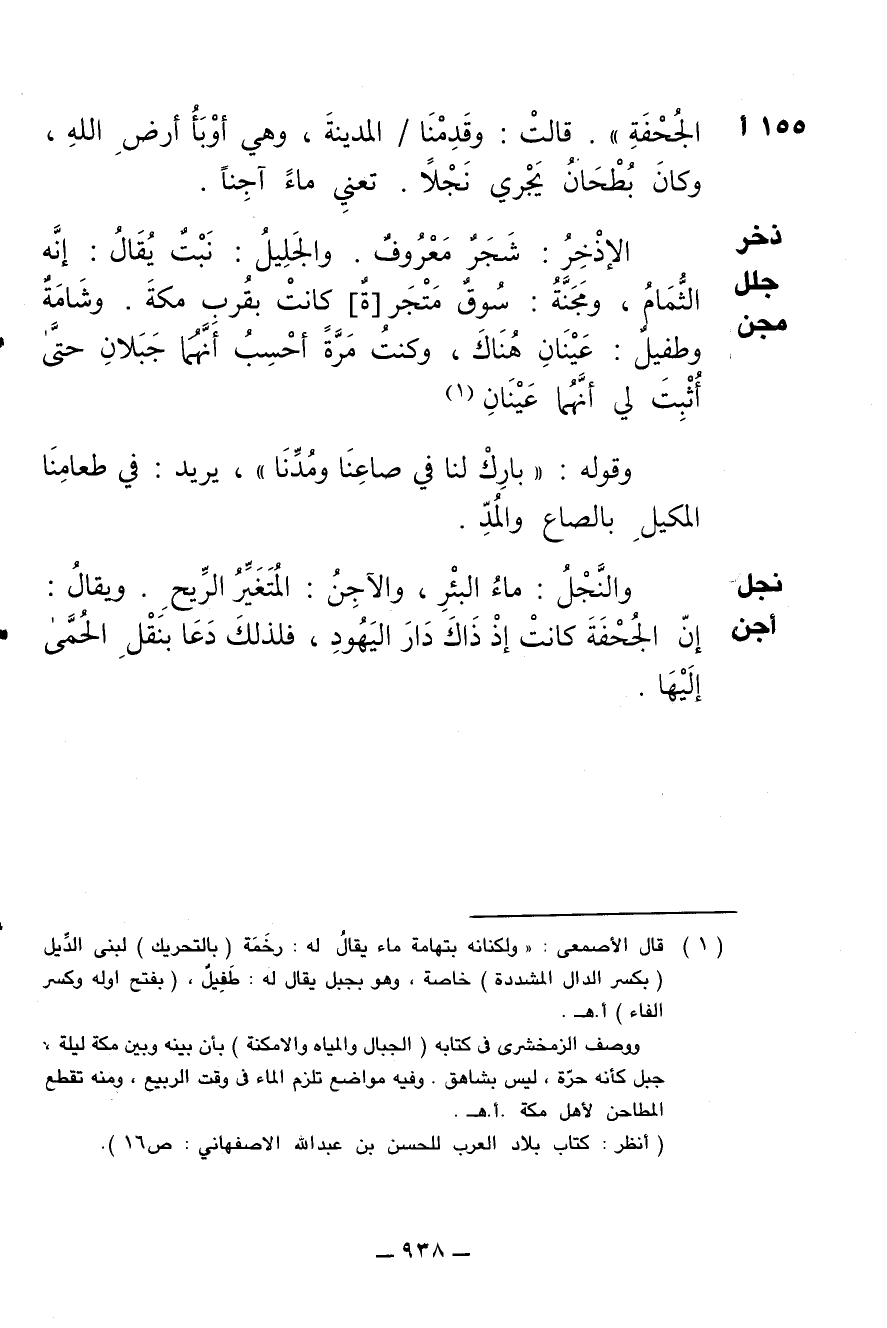 ١٥٥ أ الجُحْفَةِ » . قالتْ : وقَدِمْنَا / المدينةَ ، وهي أوْبَأُ أرضِ اللهِ ،
وكانَ بُطْحَانُ يَجْري نَجْلًا . تعنيِ ماءً آجِناً .
ذخر الإذْخِرُ : شَجَرٌ مَعْرُوفٌ . والجَلِيلُ : نَبْتٌ يُقَالُ : إنَّه
جلل الثُّمَامُ ، ومَجَنَّةُ : سُوقٌ مَتْجَر [ةٌ] كانتْ بقُربِ مكةَ . وشَامَةٌ
مجن وطفيلٌ : عَيْنَانِ هُنَاكَ ، وكنتُ مَرَّةً أحْسِبُ أنَّهُما جَبَلانِ حتَّىٰ
أُثْبِتَ لي أنَّهُما عَيْنَانِ (١)
وقوله : « بارِكْ لنا في صاعِنَا ومُدِّنَا » ، يريد : في طعامِنَا
المكيلِ بالصاع والمُدِّ .
نجل والنَّجْلُ : ماءُ البئْرِ ، والآجِنُ : المُتَغَيِّرُ الرِّيحِ . ويقالُ :
أجن إنّ الجُحْفَةَ كانتْ إذْ ذَاكَ دَارَ اليَهُودِ ، فلذلكَ دَعَا بنَقْلِ الحُمَّىٰ
إلَيْهَا .
( ١ ) قال الأصمعى : « ولكنانه بتهامة ماء يقالُ له : رخَمَة ( بالتحريك ) لبنى الدِّيل
( بكسر الدال المشددة ) خاصة ، وهو بجبل يقال له : طَفِيلٌ ، ( بفتح اوله وكسر
الفاء ) أ.هـ .
ووصف الزمخشرى فى كتابه ( الجبال والمياه والامكنة ) بأن بينه وبين مكة ليلة ،
جبل كأنه حرّة ، ليس بشاهق . وفيه مواضع تلزم الماء فى وقت الربيع ، ومنه تقطع
المطاحن لأهل مكة .أ.هـ .
( أنظر : كتاب بلاد العرب للحسن بن عبدالله الاصفهاني : ص١٦ ).
ــ ٩٣٨ ــ